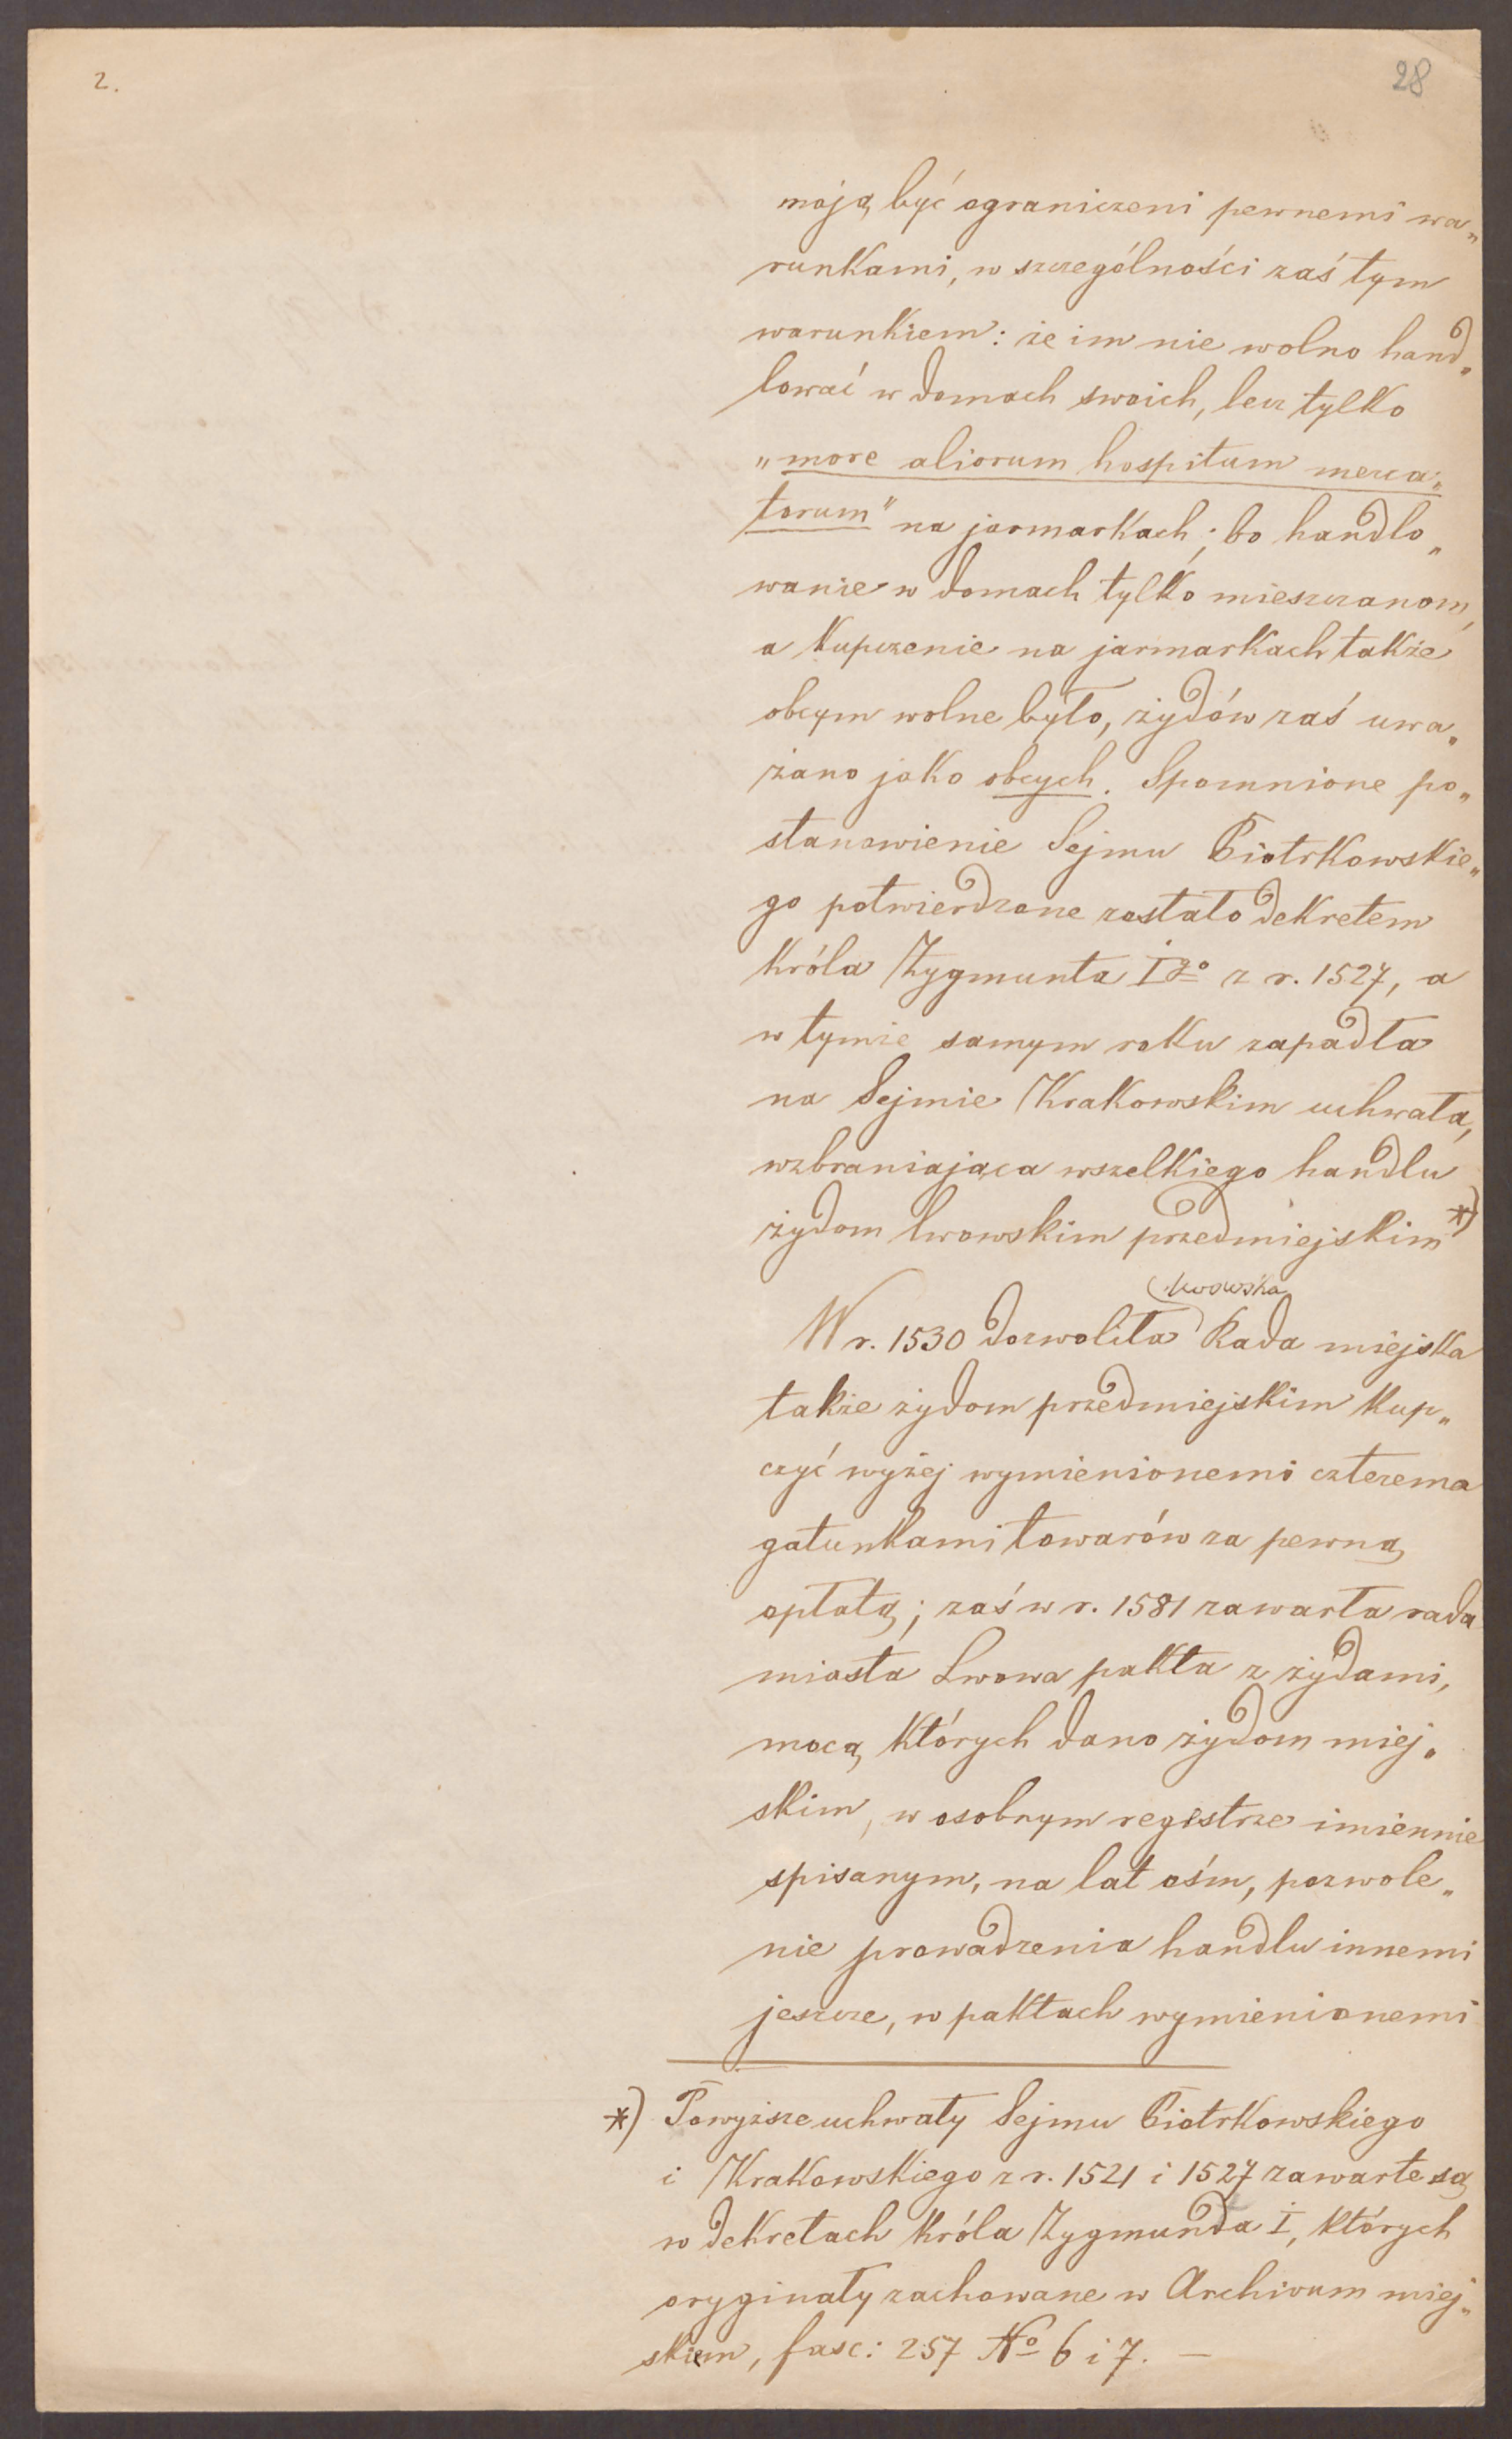 2.
28
mają być ograniczeni pewnemi wa„
runkami, w szczególności zaś tym
warunkiem: że im nie wolno hand„
lować w domach swoich, lecz tylko
„more aliorum hospitum merca„
torum" na jarmarkach; bo handlo„
wanie w domach tylko mieszczanom,
a kupczenie na jarmarkach także
obcym wolne było, żydów zaś uwa„
żano jako obcych. Spomnione po„
stanowienie Sejmu Piotrkowskie„
go potwierdzone zostało dekretem
króla Zygmunta Igo z r. 1527, a
w tymże samym roku zapadła
na Sejmie Krakowskim uchwała,
wzbraniająca wszelkiego handlu
żydom lwowskim przedmiejskim *)
lwowska
W r. 1530 dozwoliła Rada miejska
także żydom przedmiejskim kup„
czyć wyżej wymienionemi czterema
gatunkami towarów za pewną
opłatą; zaś w r. 1581 zawarła rada
miasta Lwowa pakta z żydami,
mocą których dano żydom miej„
skim, w osobnym registrze imiennie
spisanym, na lat ośm, pozwole„
nie prowadzenia handlu innemi
jeszcze, w paktach wymienionemi
*) Powyższe uchwały Sejmu Piotrkowskiego
i Krakowskiego z r. 1521 i 1527 zawarte są
w dekretach króla Zygmunda I, których
oryginały zachowane w Archivum miej„
skiem, fasc: 257 No 6 i 7. —